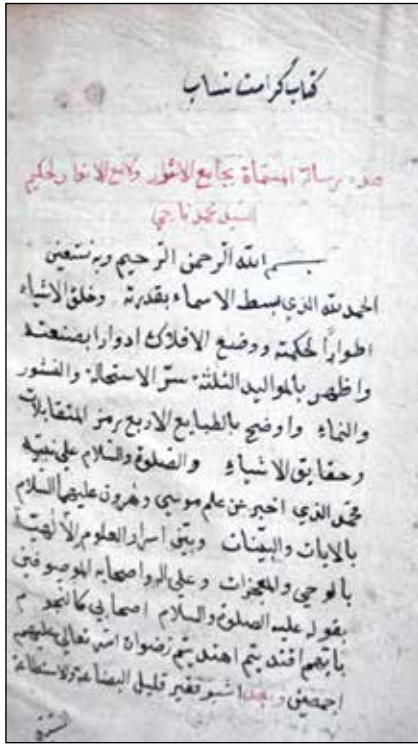 كتاب كرامت نساب
هذه رسالة المسماة بجامع الاشور ولامع الانها لحكيم
السيد محمد ناجي
بسم الله الرحمن الرحيم وبه نستعين
الحمد لله الذي بسط الاسماء بقدرته وخلق الاشياء
اطوارا لحكمته ووضع الافلاك ادوارا بصنعته
واظهر بالمواليد الثلثة سر الاستحالة والنشور
والنماء واوضح بالطبايع الاربع رمز المتقابلات
وحقايق الاشياء والصلوة والسلام على نبيه
محمد الذي اخبر عن علم موسى وهرون عليهما السلام
بالايات والبينات وبين اسرار العلوم الالهية
بالوحي والمعجزات وعلى اله واصحابه الموصوفين
بقوله عليه الصلوة والسلام اصحابي كالنجوم
بايهم اقتديتم اهتديتم رضوان الله تعالى عليهم
اجمعين وبعد اشبو فقير قليل البضاعة والاستطاعة